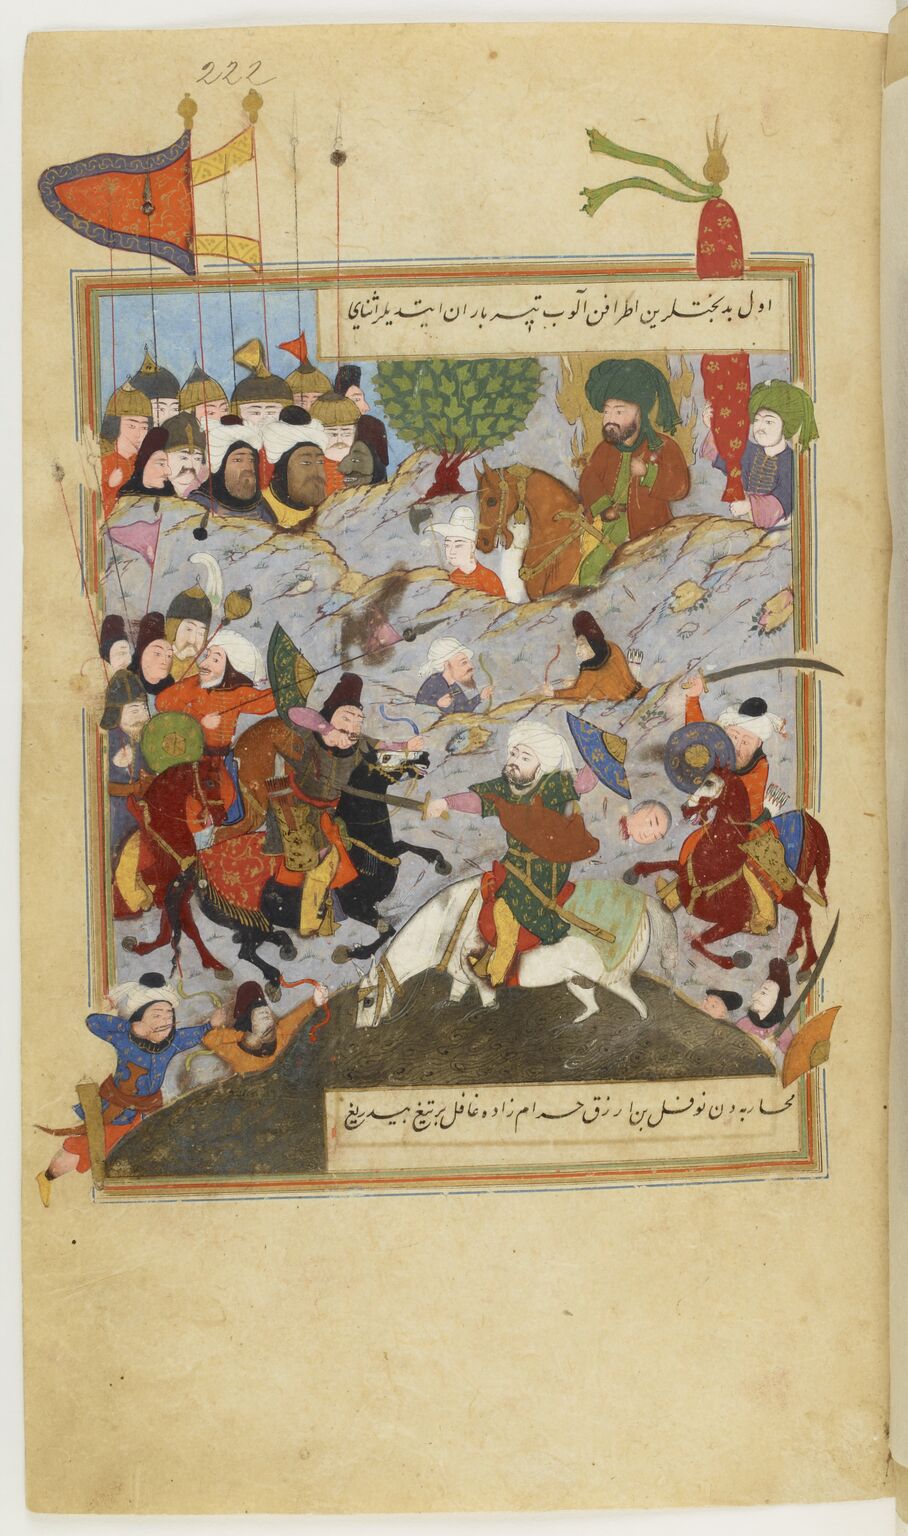 222
اول بدبختلرین اطرافن آلوب تیر باران ایتدیلر اثنای
محاربه دن نوفل بن ارزق حرام زاده غافل بر تیغ بیدریغ